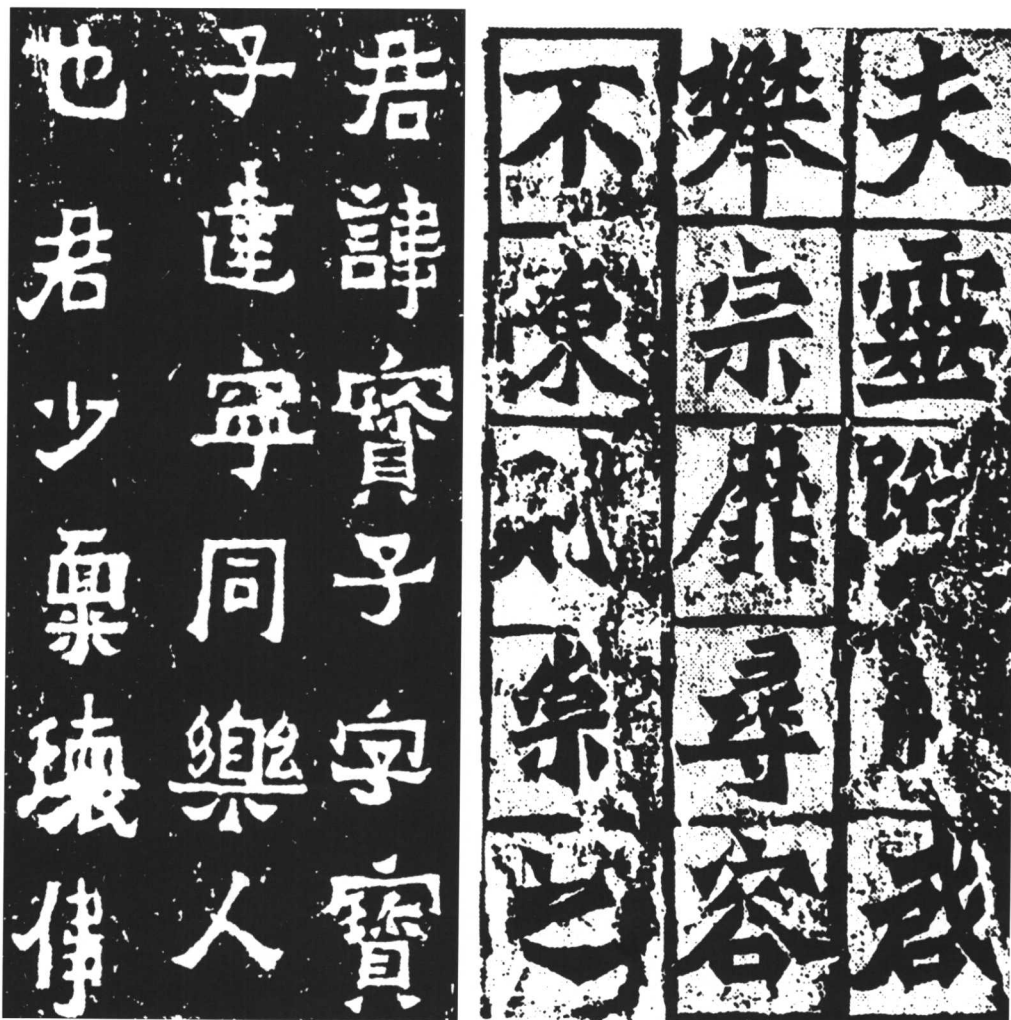 夫靈啓
攀宗靡尋容
不陳則崇之
君諱寶子字寶
子建寧同樂人
也君少稟瓌偉